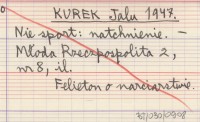 KUREK Jalu 1947.
Nie sport: natchnienie. –
Młoda Rzeczpospolita 2,
nr 8, il.
Felieton o narciarstwie.